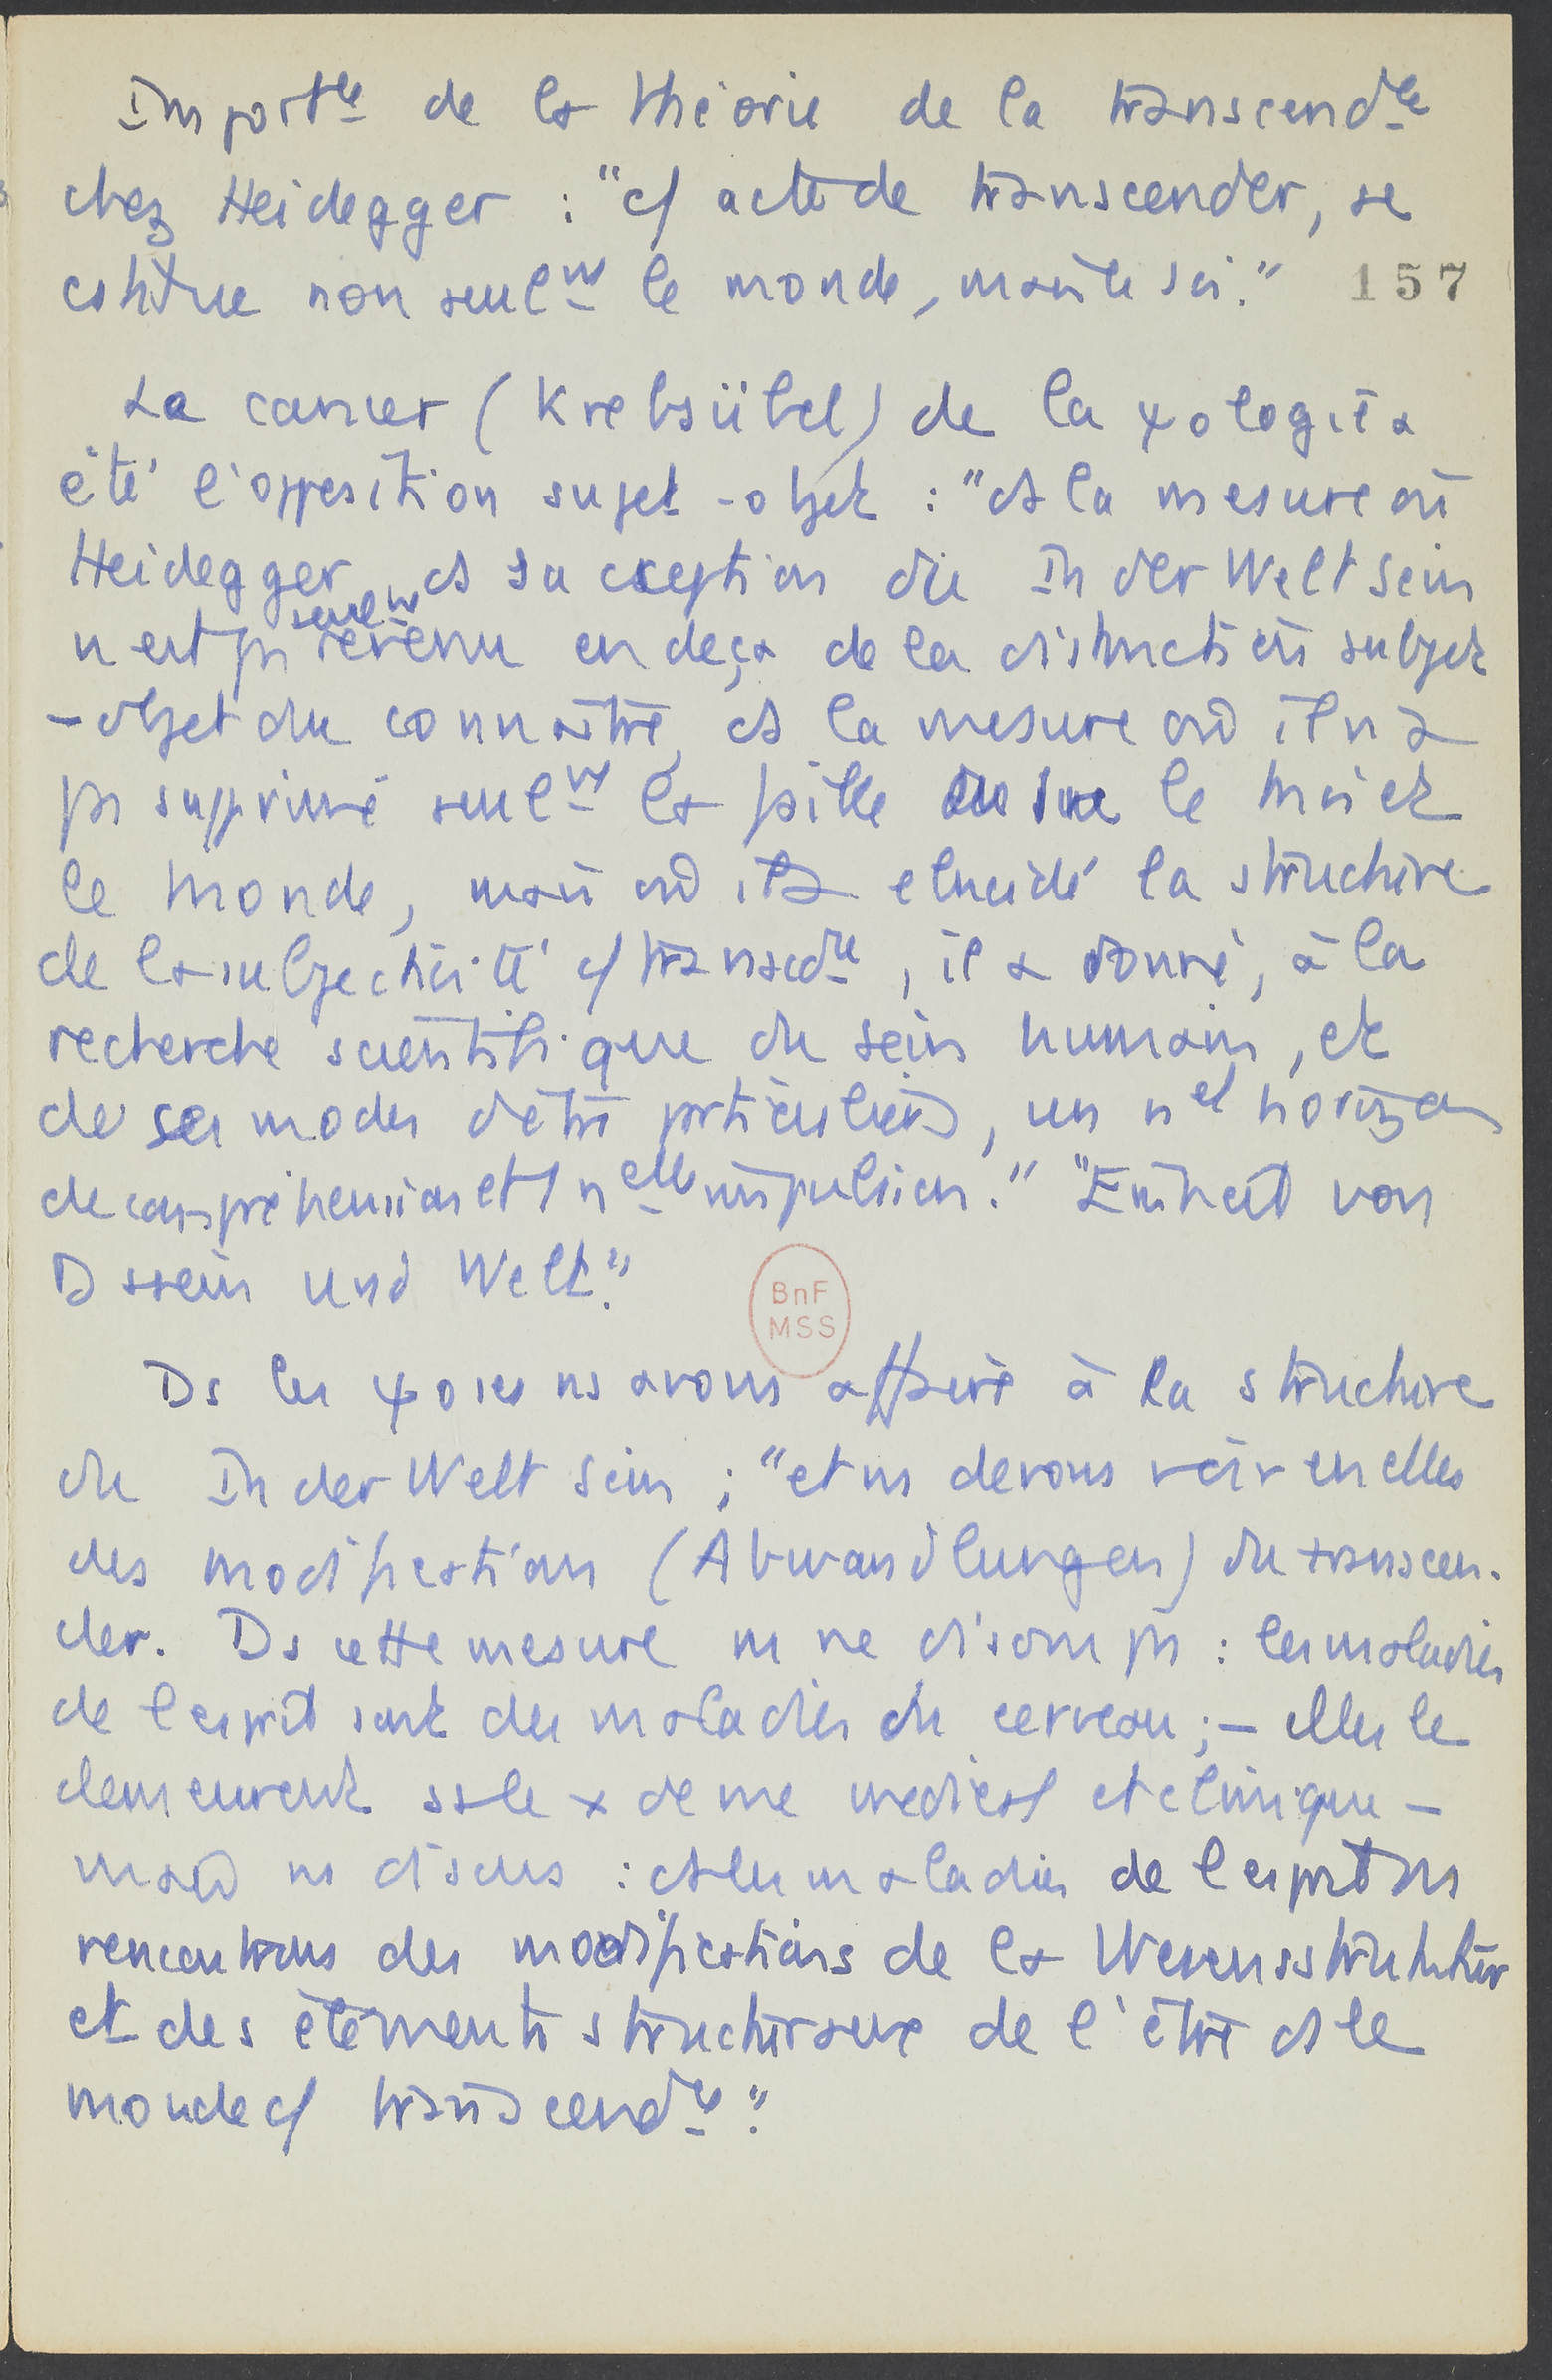 Importce de la théorie de la transcendce
chez Heidegger : "c/ acte de transcender, se
cstitue non seulmt le monde, mais le soi." 157
Le cancer (Krebsübel) de la ψologie a
été l'opposition sujet-objet : "ds la mesure où
Heidegger, ds sa cception du In der Welt Sein
n'est ps seulemt revenu en deça de la distinction subjet
-objet du connaître, ds la mesure où il n'a
ps supprimé seulmt la faille entre le moi et
le monde, mais où il a elucidé la structure
de la subjectivité c/ transcdce, il a donné, à la
recherche scientifique du sein humain, et
de ses modes d'être particuliers, un nel horizon
de compréhension et 1 nelle impulsion." "Einheit von
Dasein und Welt."
BnF
MSS
Ds les ψoses ns avons affaire à la structure
du In der Welt Sein ; "et ns devons voir en elles
des modifications (Abwandlungen) du transcen-
der. Ds cette mesure ns ne disons ps : les maladies
de l'esprit sont des maladies du cerveau ; - elles le
demeurent ss le x de vue medical et clinique -
mais ns disons : ds les maladies de l'esprit ns
rencontrons des modifications de la Wesensstruktur
et des éléments structuraux de l'être ds le
monde c/ transcendce."